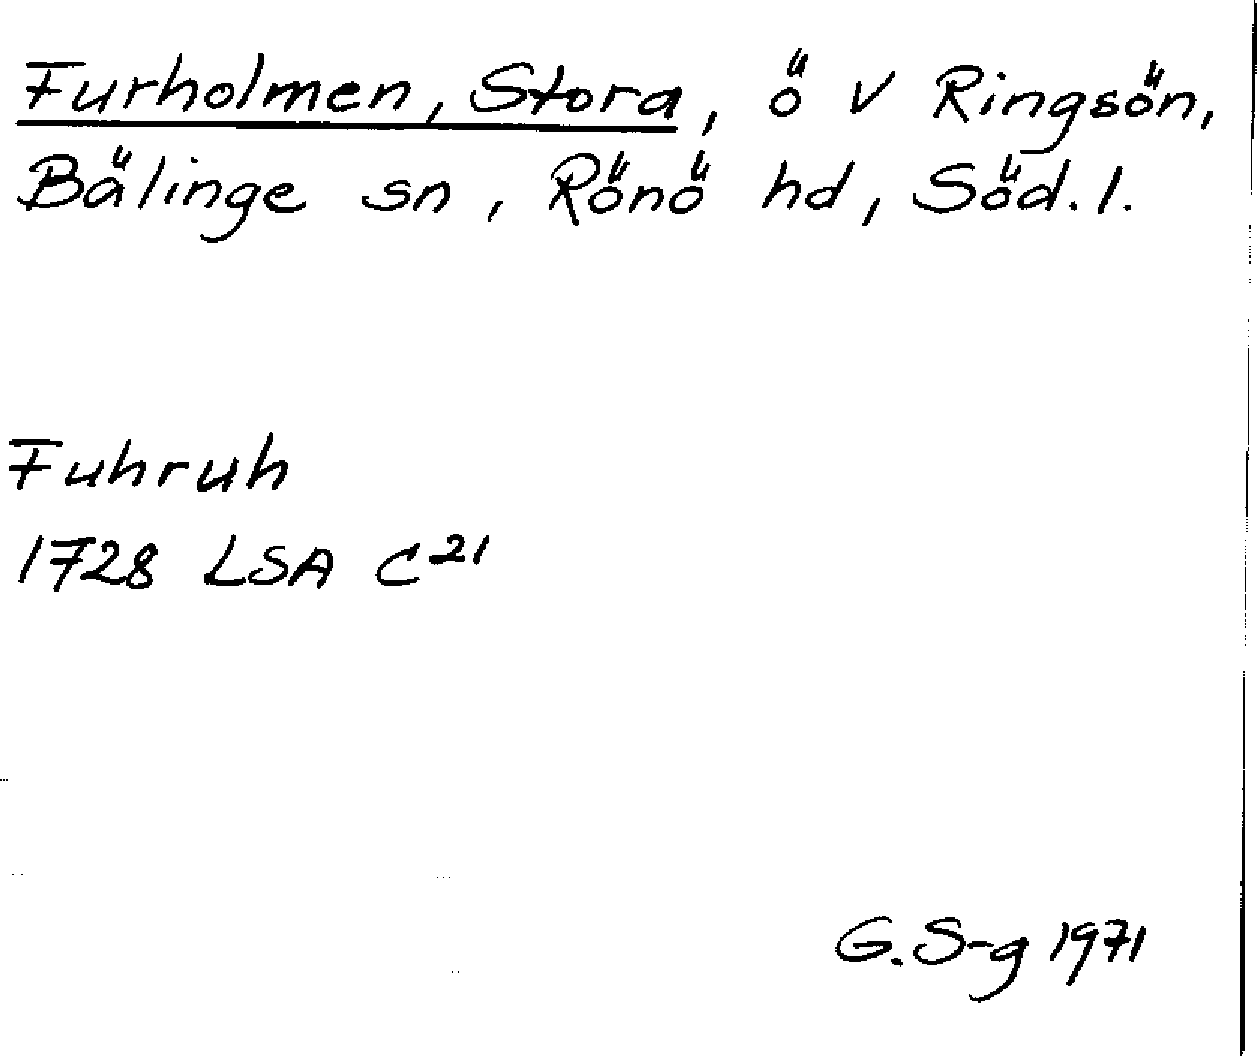 Furholmen, Stora, ö V Ringsön,
Bälinge sn, Rönö hd, Söd. l.
Fuhruh
1728 LSA C21
G. S-g 1971